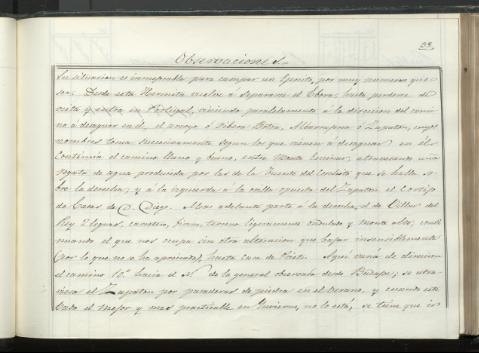 53.
Observaciones &.ª
Su situacion es inmejorable para campar un Ejercito, por muy numeroso que
sea. Desde esta Hermita vuelve á separarse el hasta perderse de
vista y entra en Portugal, viniendo paralelamente á la direccion del cami
no á desaguar en él, el arroyo ó Ribera Botoa, ó Zapaton, cuyos
nombres toma sucesivamente segun los que vienen á desaguar en él.
Continúa el camino llano y bueno, entre monte encinar, atravesando una
regata de agua producida por las de la Fuente del que se halla so
bre la derecha, y á la izquierda á la orilla opuesta del Zapaton el Cortijo
de Casas de D. Diego. Mas adelante parte á la derecha, el de Villar del
Rey 2 leguas, carretero, firme, terreno ligeramente ondulado y monte alto; conti
nuando el que nos ocupa sin otra alteracion que bajar insensiblemente
(por lo que no se ha apreciado) hasta casa de Prieto. Aqui varia de direccion
el camino 10.º hacia el N. de la general observada desde Badajoz; se atra
viesa el Zapaton por pasaderas de piedra en el verano, y cuando este
vado el mejor y mas practicable en Invierno, no lo está, se tiene que ir